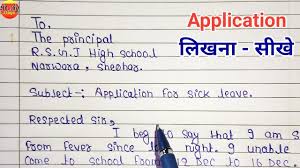 Application
लिखना - सीखे
To,
The principal
R.S.N.J High school
Narwara, sheohar.
Subject:- Application for sick leave.
Respected Sir,
I beg to say that I am s
from fever since last night. I unable
come to school from 12 Dec to 16 Dec.